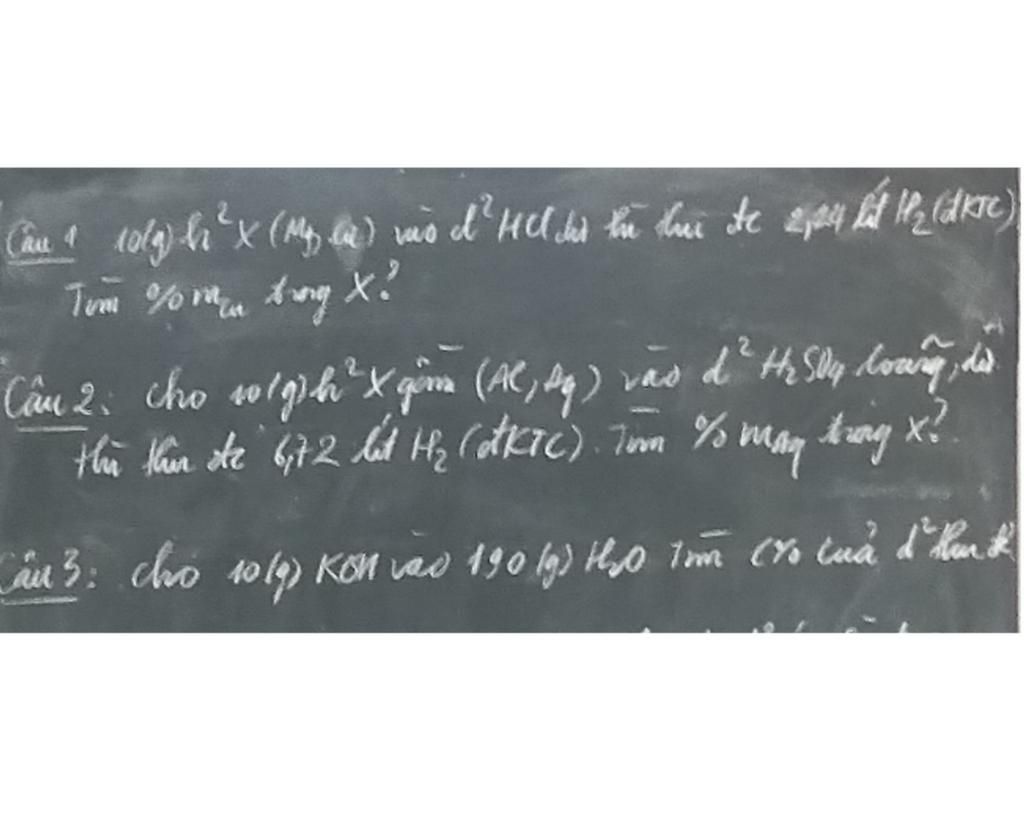 Câu 1 10(g) h² X (Mg, Cu) vào d² HCl dư thì thu đc 2,24 lít H₂ (đKTC)
Tìm % mCu trong X?
Câu 2: cho 10(g) h² X gồm (Al, Ag) vào d² H₂SO₄ loãng, dư
thì thu đc 6,72 lít H₂ (đKTC). Tìm % mAg trong X?
Câu 3: cho 10(g) KOH vào 190(g) H₂O Tìm C% của d² thu đc